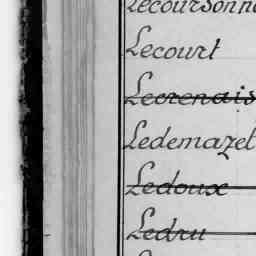 Lecoursonn
Lecourt
Lecrenais
Ledemazel
Ledoux
Ledru